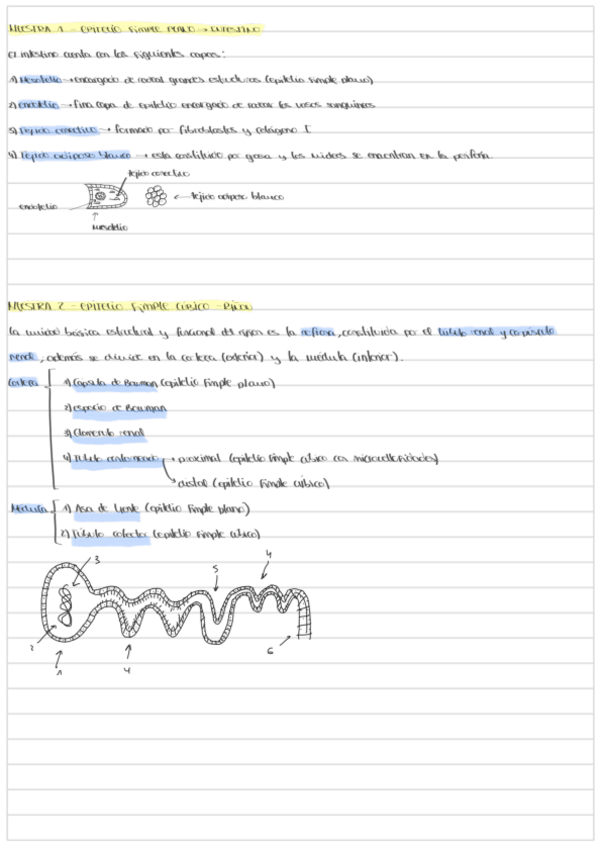 MUESTRA 1 - EPITELIO SIMPLE PLANO → INTESTINO
El intestino cuenta con las siguientes capas:
1) Mesotelio → encargado de rodear grandes estructuras (epitelio simple plano)
2) endotelio → fina capa de epitelio encargado de rodear los vasos sanguineos
3) Tejido conectivo → formado por fibroblastos y colágeno I
4) Tejido adiposo blanco → esta constituido por grasa y los núcleos se encuentran en la periferia.
tejido conectivo
endotelio
← tejido adiposo blanco
mesotelio
MUESTRA 2 - EPITELIO SIMPLE CÚBICO - RIÑÓN
La unidad básica estructural y funcional del riñon es la nefrona, constituida por el túbulo renal y corpúsculo
renal, además se divide en la corteza (exterior) y la médula (interior).
Corteza
1) Capsula de Bowman (epitelio simple plano)
2) espacio de Bowman
3) Glomerulo renal
4) Túbulo contorneado → proximal (epitelio simple cúbico con microvellosidades)
distal (epitelio simple cúbico)
Médula
1) Asa de Henle (epitelio simple plano)
2) Túbulo colector (epitelio simple cúbico)
3
5
4
2
1
4
6